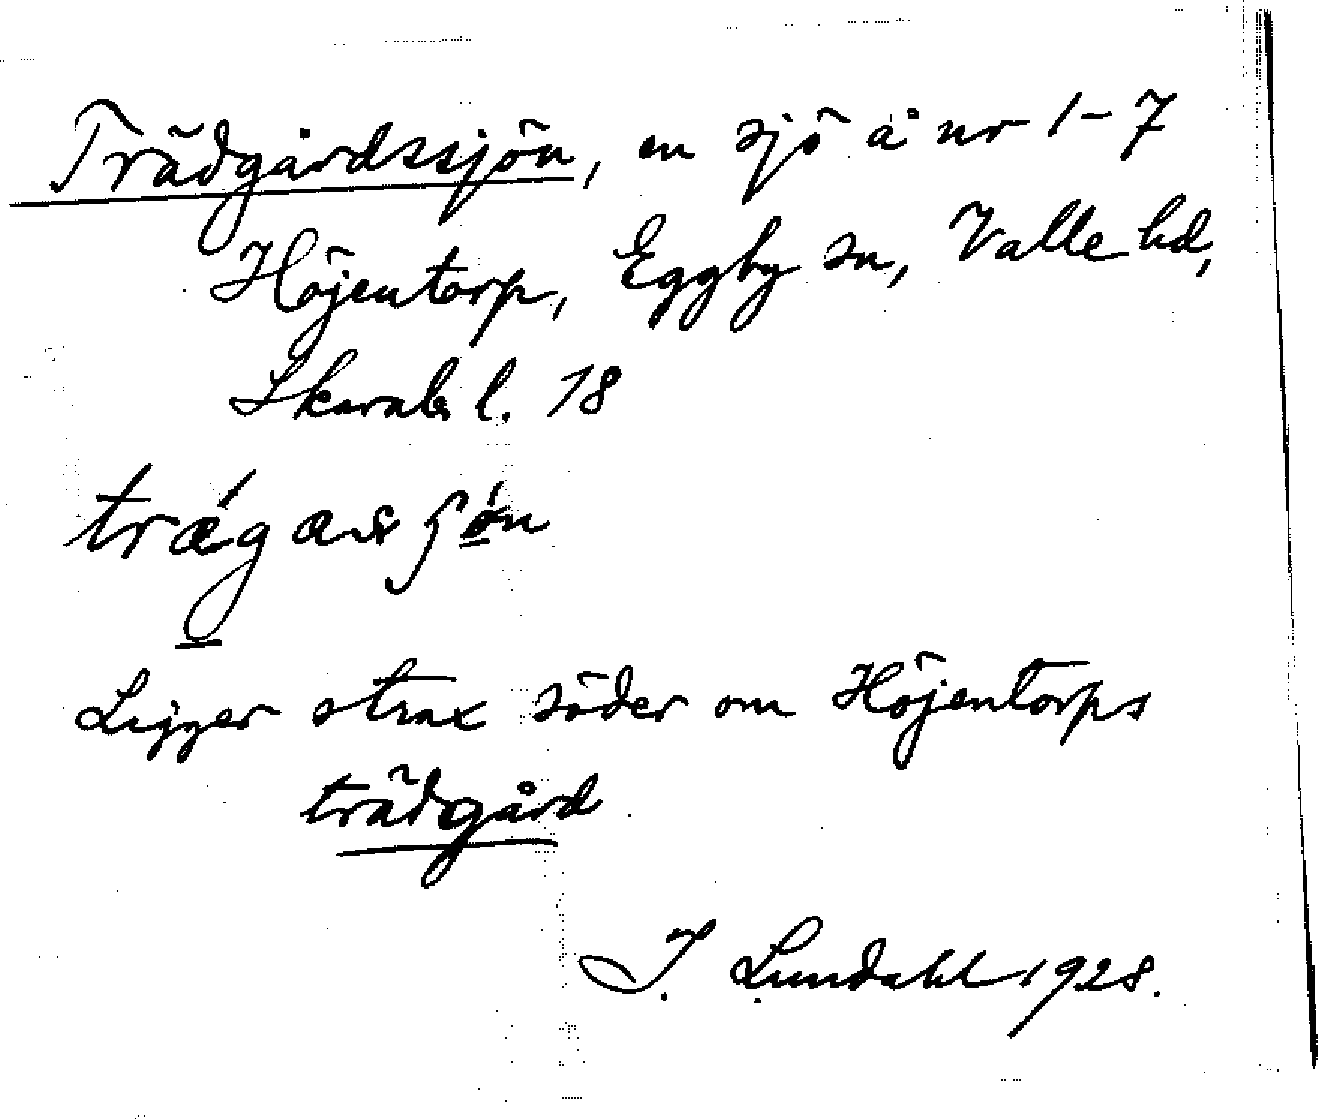 Trädgårdssjön, en sjö å nr 1-7
Höjentorp, Eggby sn, Valle hd,
Skarab. l. 18
trǽgasʃǿn
Ligger strax söder om Höjentorps
trädgård
I. Lundahl 1928.